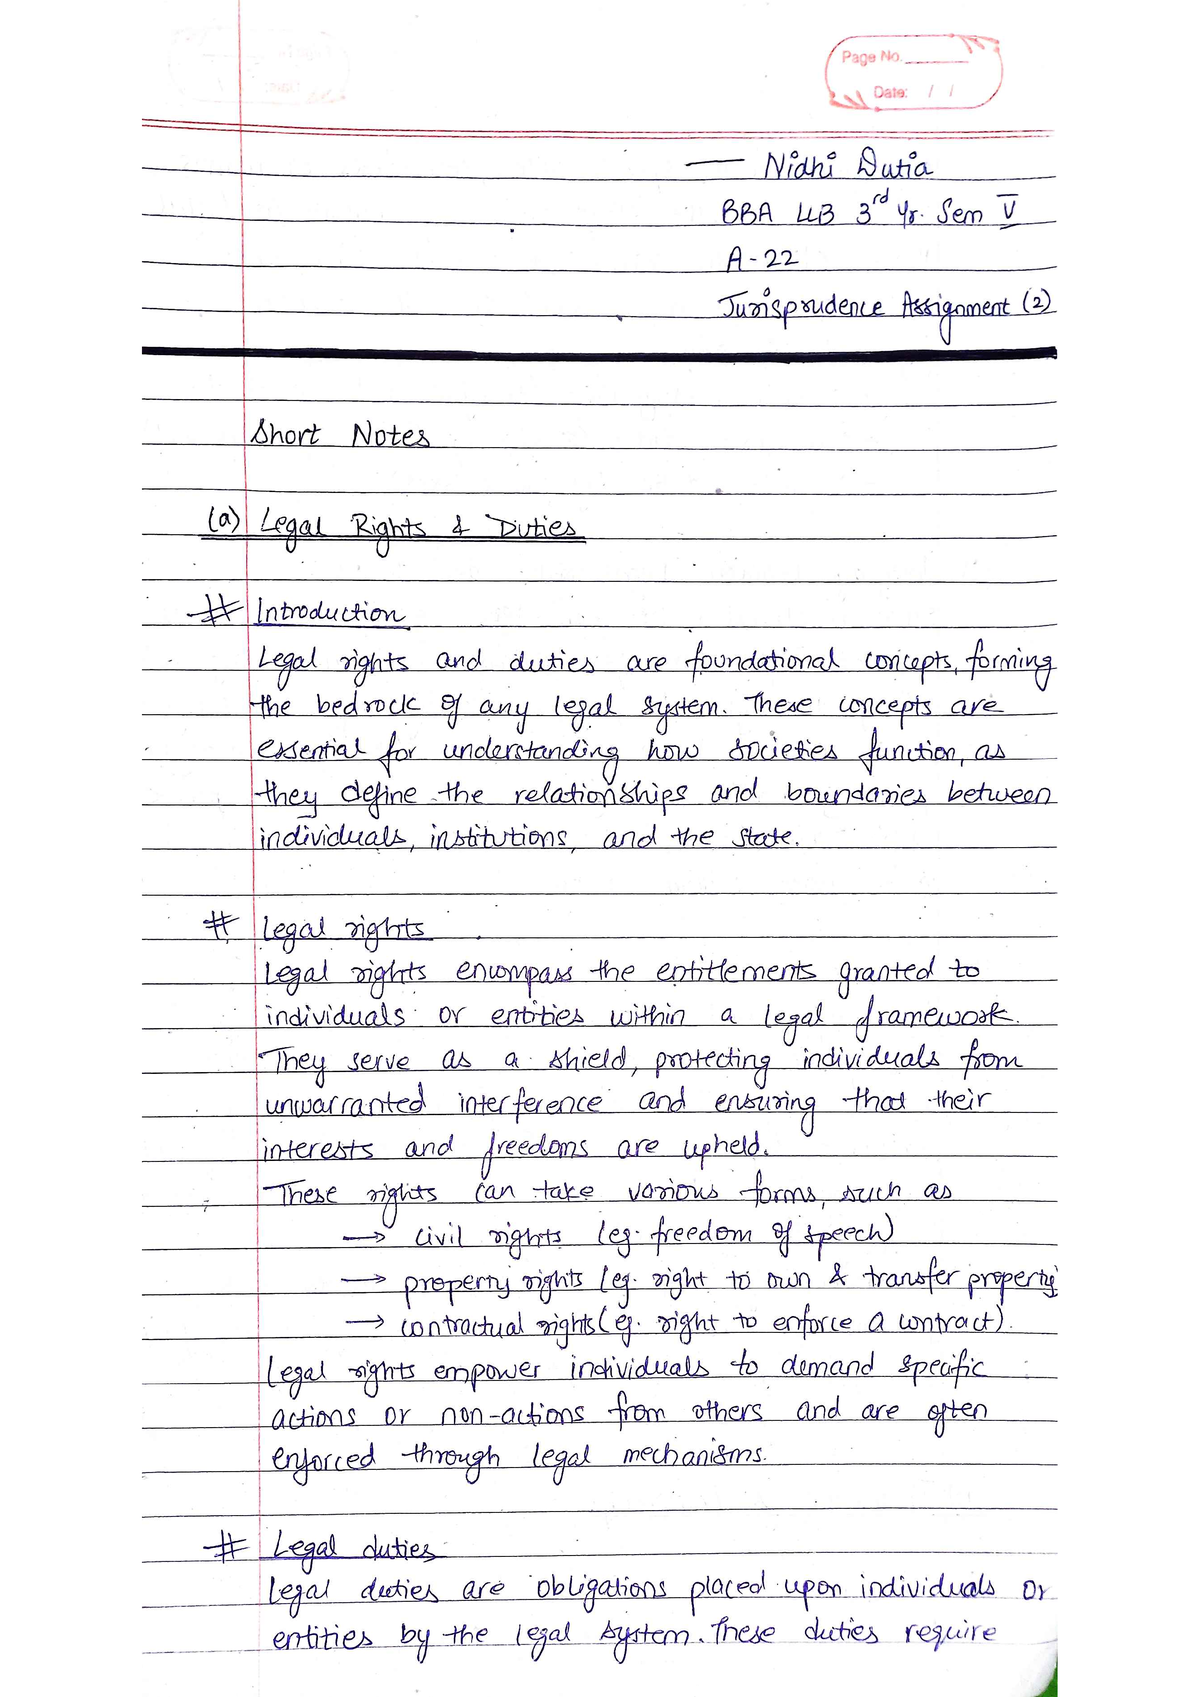 Page No.
Date: / /
— Nidhi Dutia
BBA LLB 3rd Yr. Sem V
A-22
Jurisprudence Assignment (2)
Short Notes
(a) Legal Rights & Duties
# Introduction
Legal rights and duties are foundational concepts, forming
the bedrock of any legal system. These concepts are
essential for understanding how societies function, as
they define the relationships and boundaries between
individuals, institutions, and the state.
# Legal rights
Legal rights encompass the entitlements granted to
individuals or entities within a legal framework.
They serve as a shield, protecting individuals from
unwarranted interference and ensuring that their
interests and freedoms are upheld.
These rights can take various forms, such as
→ civil rights (eg. freedom of speech)
→ property rights (eg. right to own & transfer property)
→ contractual rights (eg. right to enforce a contract).
Legal rights empower individuals to demand specific
actions or non-actions from others and are often
enforced through legal mechanisms.
# Legal duties
Legal duties are obligations placed upon individuals or
entities by the legal system. These duties require